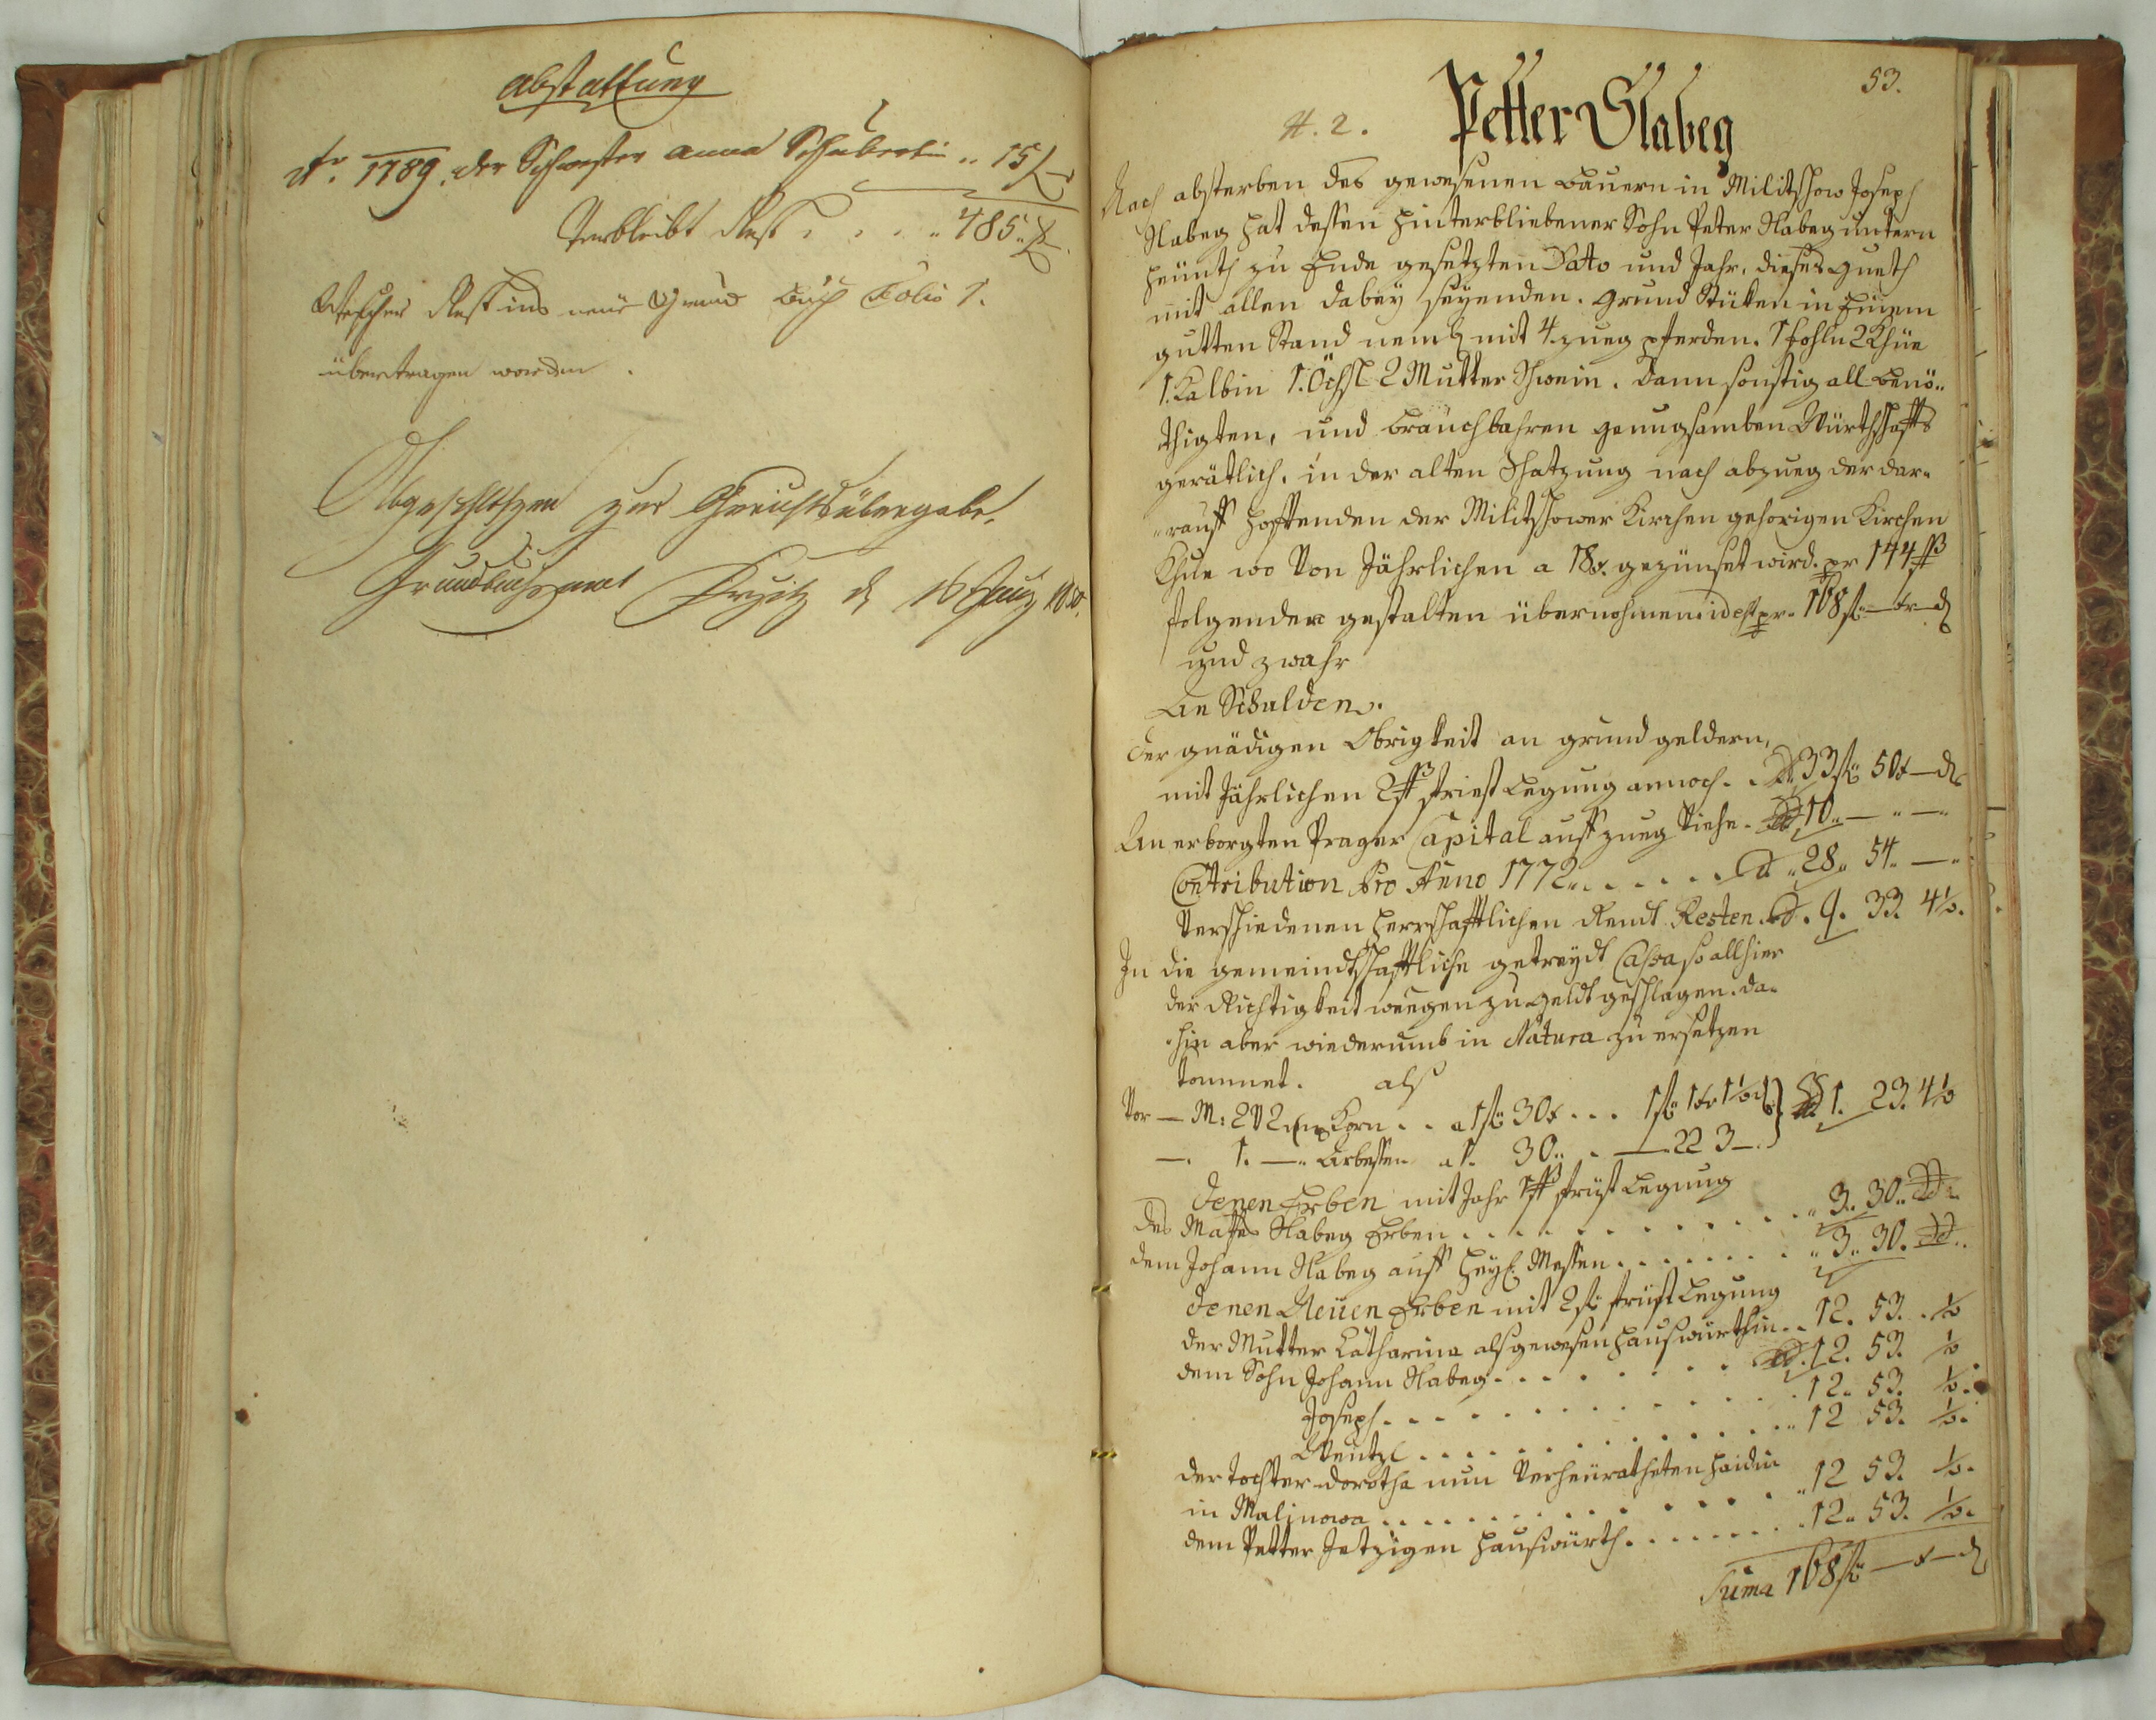 Abstattung
Ao. 1789. der Schwester Anna Schubertin .. 15 f
Verbleibt Rest . . . . 485. f.
Welcher Rest ins neue Grund Buch Folio 1.
übertragen worden.
Abgeschlossen zur Gerichtsübergabe.
Grundbuchsamt
53.
N. 2. Petter Slabeg
Nach absterben des gewesenen Bauern in Militschow Joseph
Slabeg hat dessen hinterbliebener Sohn Peter Slabeg untern
heünth zu Ende gesetzten Dato und Jahr, dieses Gueth
mit allen dabey seyenden. Grund Stüken in Einem
gutten Stand neml mit 4. zueg pferden. 1 Fohln 2 Khüe
1. Kalbin 1. Öchsl 2 Mutter Schwein. dann sonstig all benö..
thigten, und brauchbahren genugsamben Würthschaffts
gerätlich. in der alten Schatzung nach abzueg der dar„
„rauff hafftenden der Militschower Kirchen gehörigen Kirchen
Khue wo von Jährlichen a 18 x. gezünset wird. pr 144 ßß
folgender gestalten übernohmen. id est pr. 168 f — xr — d
und zwahr
An Schulden.
der gnädigen Obrigkeit an grund geldern,
mit Jährlichen 2 ßß friest Legung annoch . . 33 f 50 x — d
An erborgten Prager Capital auff zueg Viehe . 10 „ — „ —
Contribution Pro Anno 1772 . . . . . . 28 „ 54 „ —
Verschiedenen Herrschafftlichen Rendt Resten . 9. 33. 4½.
In die gemeindtschafftliche getreydt Cassa so allhier
der Richtigkeit weegen zu Geldt geschlagen. da„
„hin aber wiederumb in Natura zu ersetzen
kommet. als
Vor — M: 2 V 2 Korn . . a 1 f 30 x . . . 1 f 1 xr 1½ d } 1. 23. 4½
—. 1. — „ Arbessen a 1. 30 „ . — 22 3 —.
denen Erben mit Jahr 1 ßß früst Legung
des Mathes Slabeg Erben . . . . . . . . . . „ 3 „ 30 „
dem Johann Slabeg auff heyl. Messen . . . . . . . „ 3 „ 30.
denen Neuen Erben mit 2 f früst Legung
der Mutter Catharina als gewesen Hauswürthin . . 12. 53. ½
dem Sohn Johann Slabeg . . . . . . . 12. 53. ½
Joseph . . . . . . . . . . . . 12 „ 53. ½.
Wentzl . . . . . . . . . . . . „ 12 53. ½.
der Tochter Dorotha nun Verheüratheten Haidin
in Malinowa . . . . . . . . . . . „ 12 53. ½.
dem Petter Jetzigen Hauswürth . . . . . . . . 12 „ 53. ½.
Suma 168 f — x — d